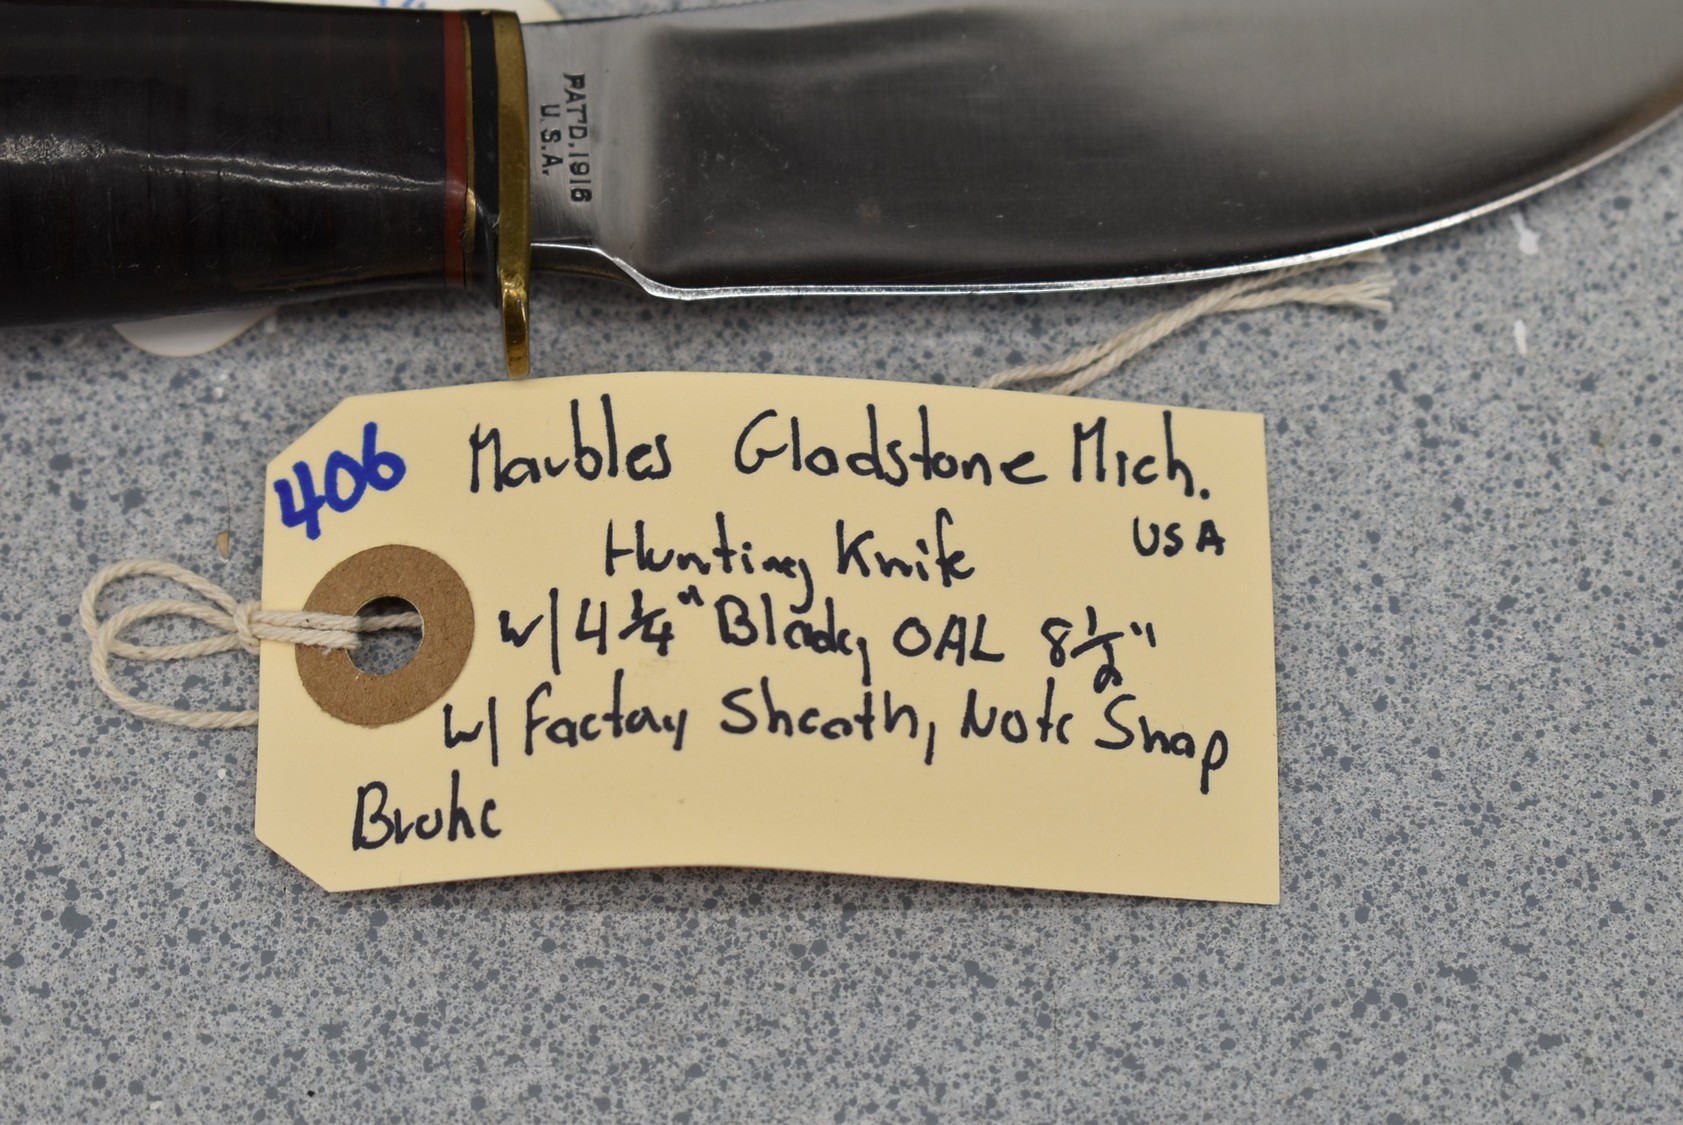 PAT'D. 1916
U.S.A.
406
Marbles Gladstone Mich.
USA
Hunting Knife
w/ 4 1/4" Blade, OAL 8 1/2"
w/ Factory Sheath, Note Snap
Broke